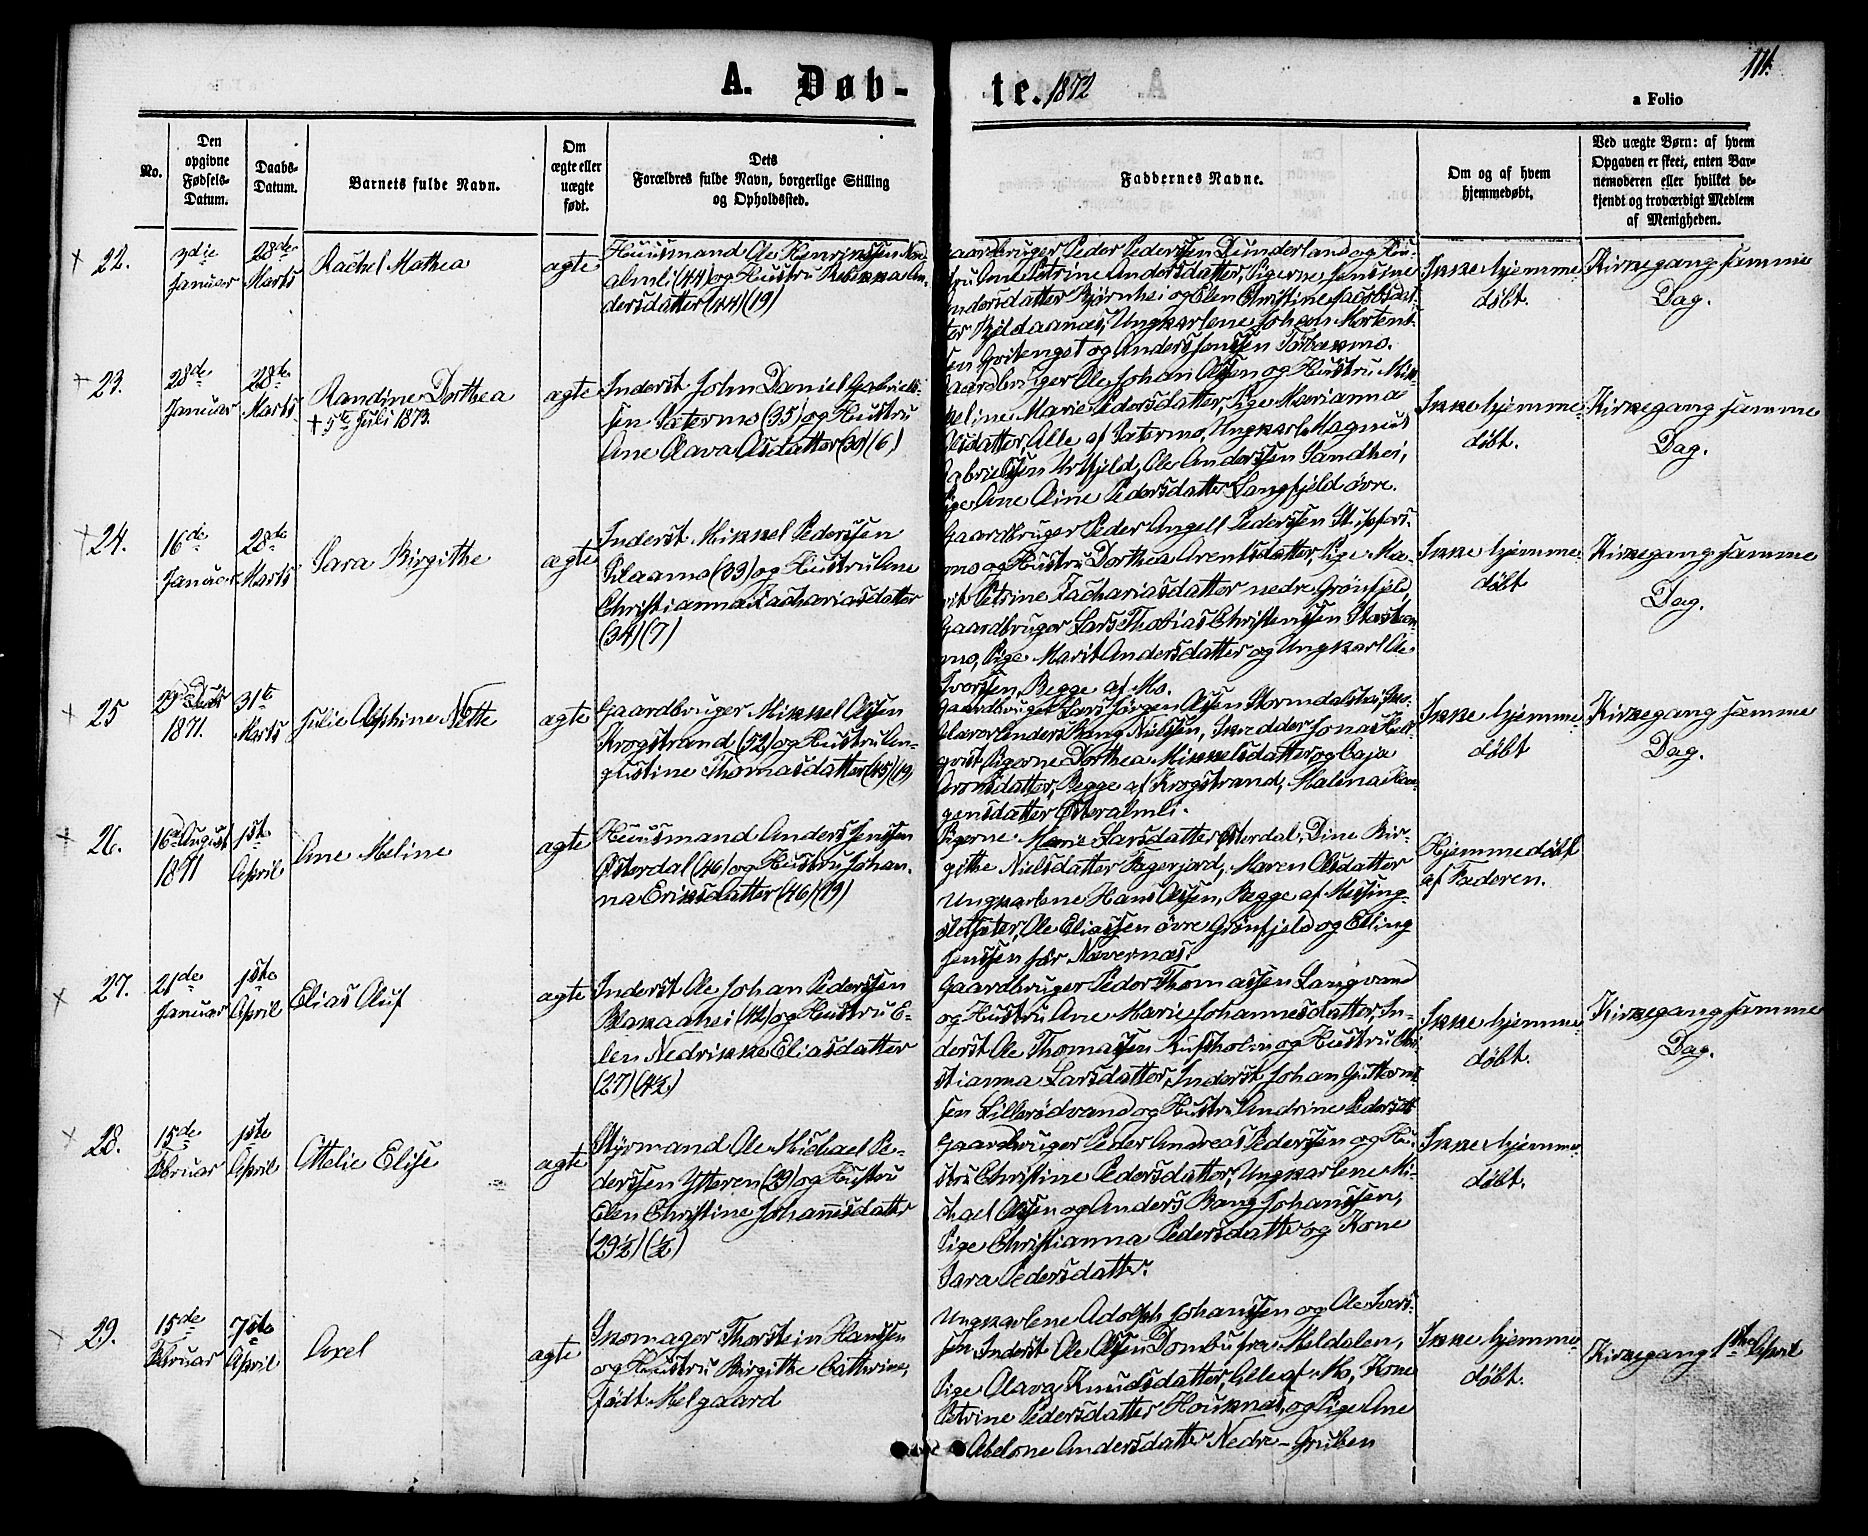 111.
A. Døb- te. 1872
a Folio
No.
Den opgivne Fødsels-Datum.
Daabs-Datum.
Barnets fulde Navn.
Om ægte eller uægte født.
Dets Forældres fulde Navn, borgerlige Stilling og Opholdssted.
Faddernes Navne.
Om og af hvem hjemmedøbt.
Ved uægte Børn: af hvem Opgaven er skeet, enten Barnemoderen eller hvilket bekjendt og troværdigt Medlem af Menigheden.
22.
3die Januar
28de Marts
Rachel Mathea
ægte
Huusmand Ole Henrikssen
almli (44) og Hustru Rebekka An-
dersdatter (44) (19)
Gaardbruger Peder Pederssen Dunderland og Hu-
stru Ane Petrine Andersdatter, Pigerne Jensine
Andersdatter Bjørnhei og Elen Christine Jacobsdat-
ter Kildaanæs, Ungkarlene Johan Mortens-
sen Gritengst og Anders Jonssen
Ikke hjemme-
døbt.
Kirkegang samme
Dag.
23.
28de Januar
28de Marts
Randine Dorthea
+ 5te Juli 1873.
ægte
Inderst John Daniel Gabriels-
sen Sætermo (35) og Hustru
Ane Olava Olsdatter (30) (6)
Gaardbruger Ole Johan Olssen og Hustru Mik-
keline Marie Pedersdatter, Pige Marianna
Olsdatter, Alle af Sætermo, Ungkarl Magnus
Gabrielssen Urfjeld, Ole Anderssen Sandhei,
Pige Ane Oline Pedersdatter Langfjeld øvre.
Ikke hjemme-
døbt.
Kirkegang samme
Dag.
24.
16de Januar
28de Marts
Sara Birgithe
ægte
Inderst Mikkel Pederssen
Pilaamo (33) og Hustru Ane
Christianna Zachariasdatter
(34) (7)
Gaardbruger Peder Angell Pederssen
mo og Hustru Dorthea Arentsdatter, Pige Ma-
rit Petrine Zachariasdatter nedre Grønfjeld,
Gaardbruger Lars Thobias Christenssen
mo, Pige Marit Andersdatter og Ungkarl Ole
Iverssen, Begge af Mo.
Ikke hjemme-
døbt
Kirkegang samme
Dag.
25
29de Decbr 1871.
31te Marts
Julie Olphine Nette
ægte
Gaardbruger Mikkel Olssen
Krogstrand (52) og Hustru Au-
gustine Thomasdatter (45) (19)
Gaardbruger Lars Jørgen Olssen Stormdalshei, Sko-
lelærer Anders Bang Nielssen, Skrædder Jonas Hell-
qvist, Pigerne Dorthea Mikkelsdatter og Caja
Aronsdatter, Begge af Krogstrand, Malena
gensdatter Østeralmli.
Ikke hjemme-
døbt
Kirkegang samme
Dag.
26.
16de August 1871
1ste April
Ane Meline
ægte
Huusmand Anders Jenssen
Østerdal (46) og Hustru Johan-
na Eriksdatter (46) (19)
Pigerne Marie Larsdatter Østerdal, Dine Bir-
githe Nielsdatter Fagerjord, Maren Olsdatter
Ungkarlene Hans Olssen, Begge af Messing-
sletsæter, Ole Eliassen øvre Grønfjeld og Elling
Jenssen før Nævernæs.
Hjemmedøbt
af Faderen.
27.
21de Januar
1ste April
Elias Oluf
ægte
Inderst Ole Johan Pederssen
Blakaahei (42) og Hustru E-
len Nedrikke Eliasdatter
(27) (4½)
Gaardbruger Peder Thomassen Langvand
og Hustru Ane Marie Johannesdatter, In-
derst Ole Thomassen Rufsholm og Hustru Chri-
stianna Larsdatter, Inderst Johan Guttorms-
sen Lillerødvand og Hustru Andrine Pedersdt.
Ikke hjemme-
døbt.
Kirkegang samme
Dag.
28.
15de Februar
1ste April
Ottelie Elise
ægte
Styrmand Ole Michael Pe-
derssen Ytteren (29) og Hustru
Elen Christine Johannsdatter
(29½) (½)
Gaardbruger Peder Andreas Pederssen og Hu-
stru Christine Pedersdatter, Ungkarlene Mi-
chael Olssen og Anders Bang Johanssen,
Pige Christianna Pedersdatter og Kone
Sara Pedersdatter.
Ikke hjemme-
døbt.
29.
15de Februar
7de April
Axel
ægte
Skomager Thorstein Hanssen
og Hustru Birgithe Cathrine,
født Melgaard
Ungkarlene Adolph Johanssen og Ole Lars-
sen, Inderst Ole Olssen Dombu fra Meldalen,
Pige Olava Knudsdatter, Alle af Mo, Kone
Petrine Pedersdatter Houknæs, og Pige Ane
Abelone Andersdatter Nedre-Gruben
Ikke hjemme-
døbt.
Kirkegang 1ste April